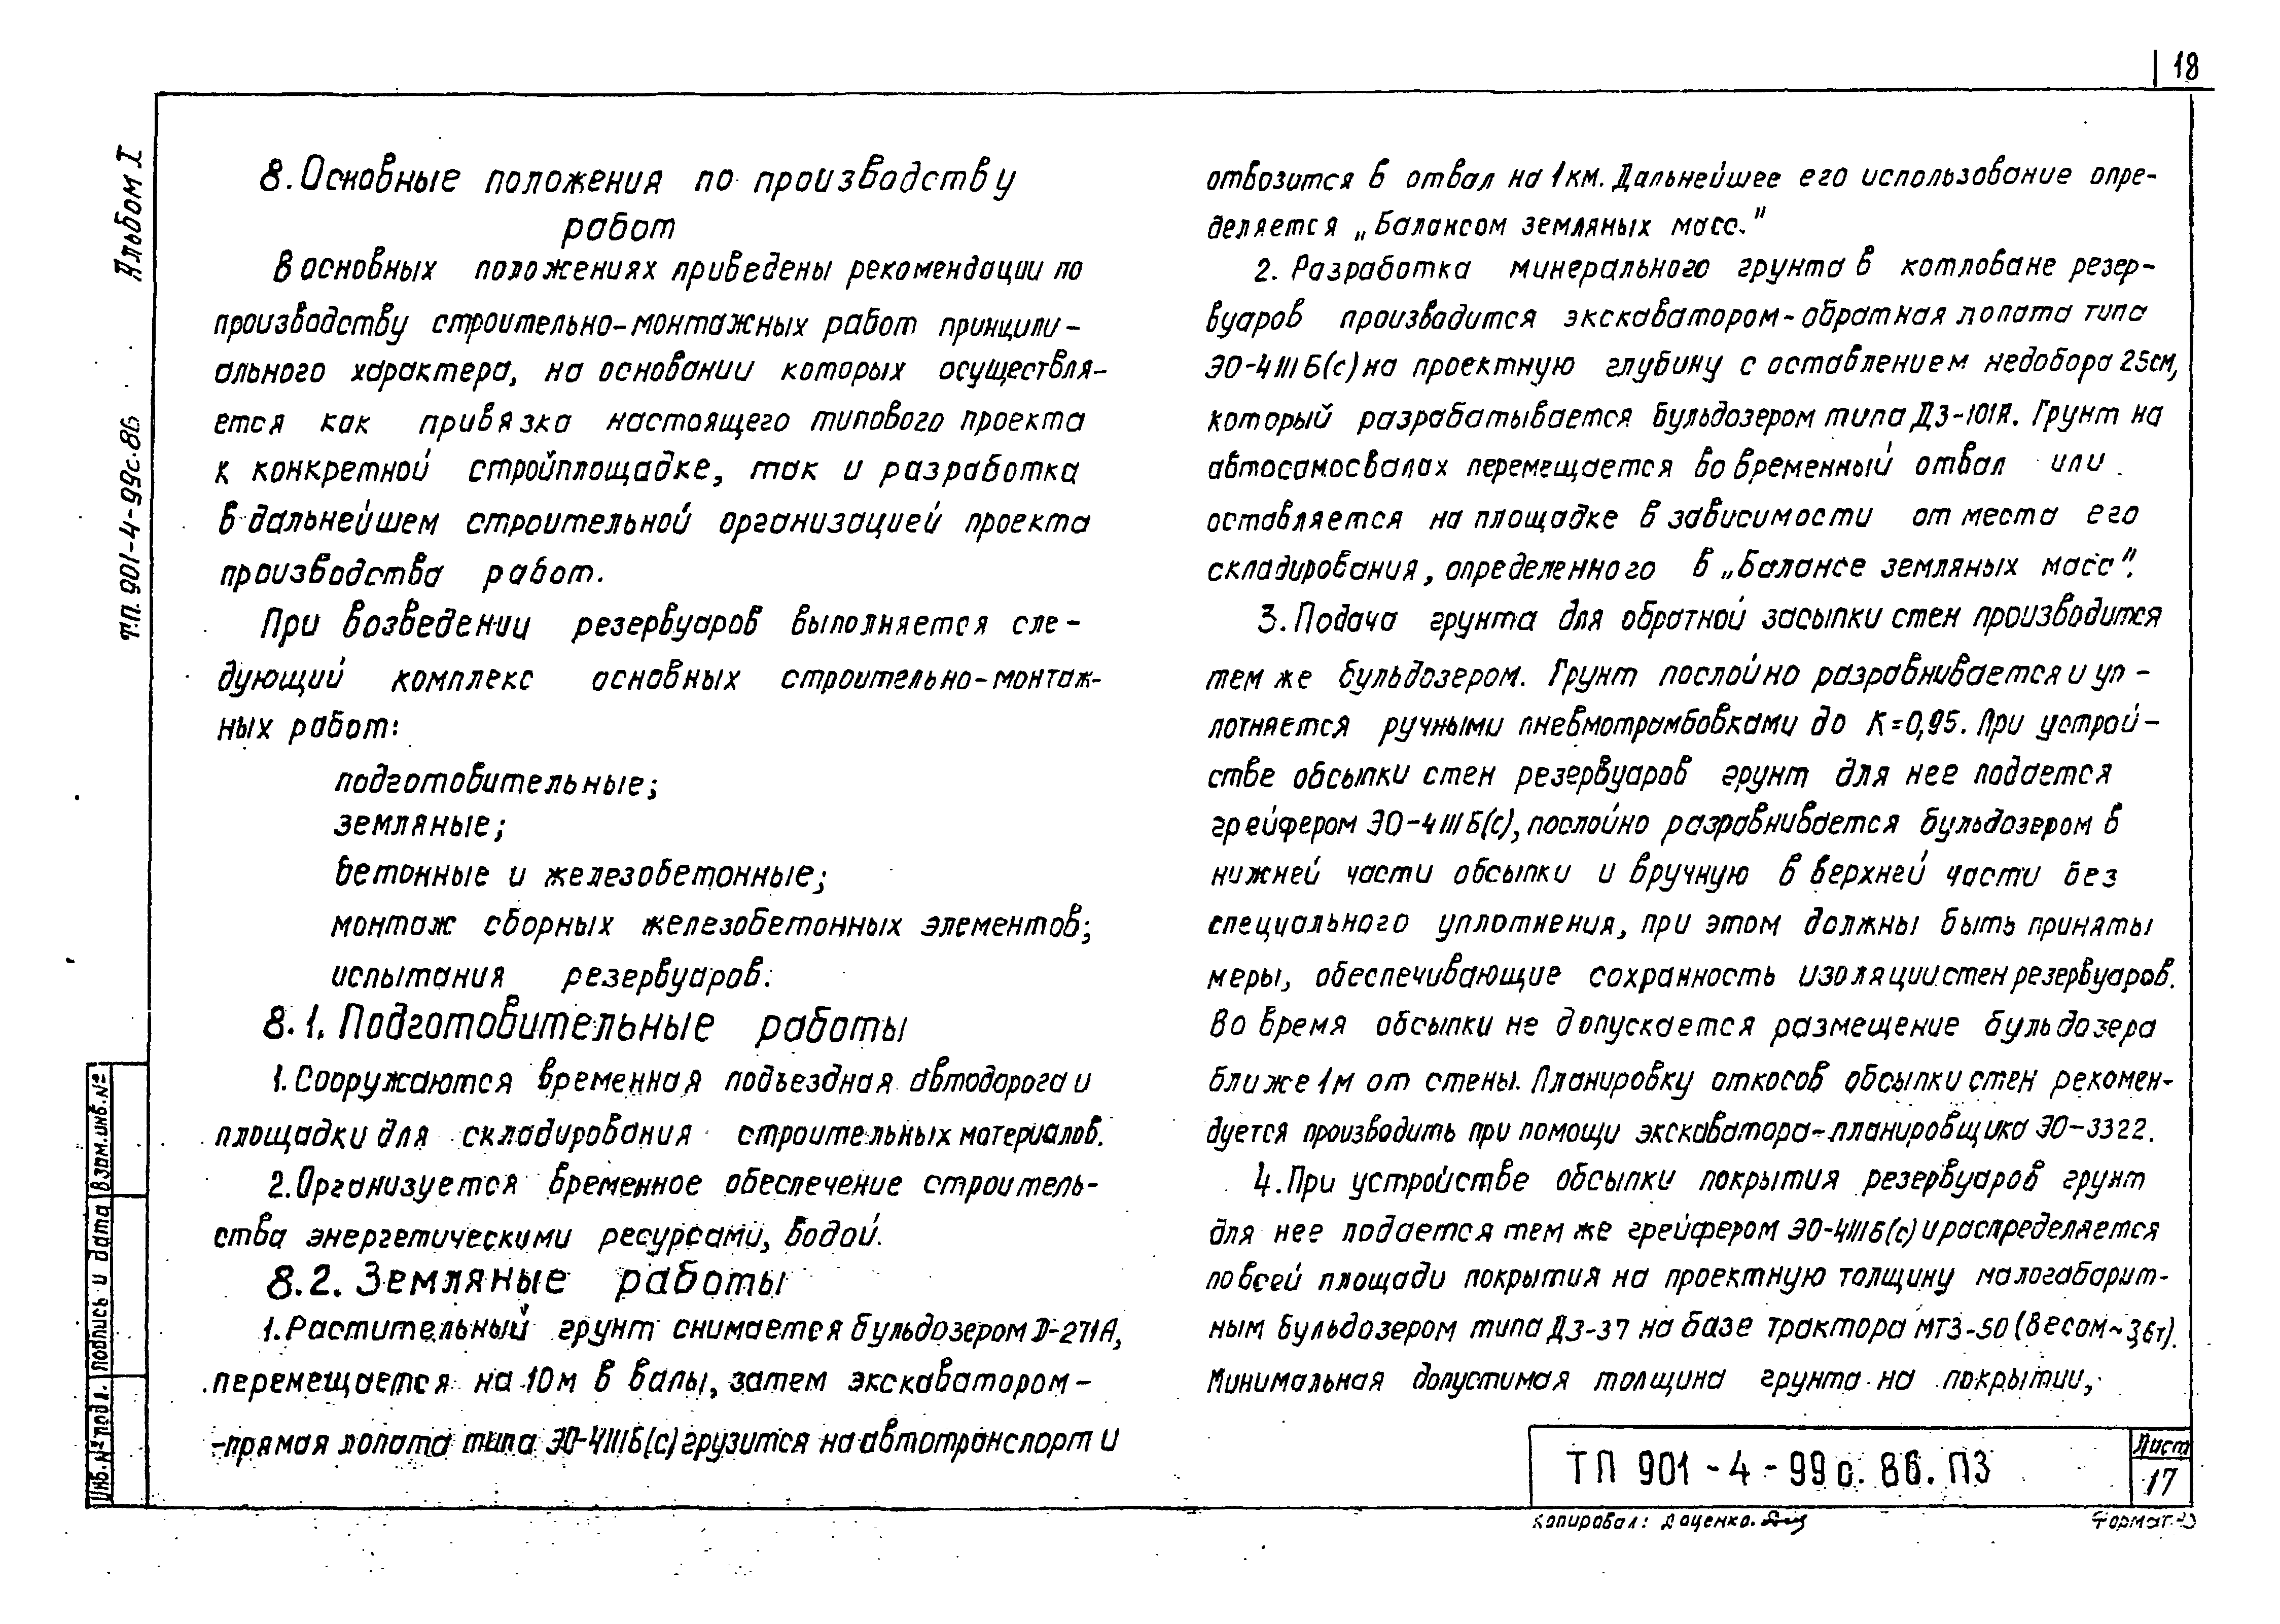 18
Альбом I
Т.П. 901-4-99с.86
8. Основные положения по производству
работ
В основных положениях приведены рекомендации по
производству строительно-монтажных работ принципи-
ального характера, на основании которых осуществля-
ется как привязка настоящего типового проекта
к конкретной стройплощадке, так и разработка
в дальнейшем строительной организацией проекта
производства работ.
При возведении резервуаров выполняется сле-
дующий комплекс основных строительно-монтаж-
ных работ:
подготовительные;
земляные;
бетонные и железобетонные;
монтаж сборных железобетонных элементов;
испытания резервуаров.
8.1. Подготовительные работы
1. Сооружаются временная подъездная автодорога и
площадки для складирования строительных материалов.
2. Организуется временное обеспечение строитель-
ства энергетическими ресурсами, водой.
8.2. Земляные работы
1. Растительный грунт снимается бульдозером Д-271А,
перемещается на 10м в валы, затем экскаватором-
-прямая лопата типа ЭО-4111Б(с) грузится на автотранспорт и
отвозится в отвал на 1км. Дальнейшее его использование опре-
деляется „Балансом земляных масс."
2. Разработка минерального грунта в котловане резер-
вуаров производится экскаватором-обратная лопата типа
ЭО-4111Б(с) на проектную глубину с оставлением недобора 25см,
который разрабатывается бульдозером типа ДЗ-101А. Грунт на
автосамосвалах перемещается во временный отвал или
оставляется на площадке в зависимости от места его
складирования, определенного в „Балансе земляных масс".
3. Подача грунта для обратной засыпки стен производится
тем же бульдозером. Грунт послойно разравнивается и уп-
лотняется ручными пневмотрамбовками до К=0,95. При устрой-
стве обсыпки стен резервуаров грунт для нее подается
грейфером ЭО-4111Б(с), послойно разравнивается бульдозером в
нижней части обсыпки и вручную в верхней части без
специального уплотнения, при этом должны быть приняты
меры, обеспечивающие сохранность изоляции стен резервуаров.
Во время обсыпки не допускается размещение бульдозера
ближе 1м от стены. Планировку откосов обсыпки стен рекомен-
дуется производить при помощи экскаватора-планировщика ЭО-3322.
4. При устройстве обсыпки покрытия резервуаров грунт
для нее подается тем же грейфером ЭО-4111Б(с) и распределяется
по всей площади покрытия на проектную толщину малогабарит-
ным бульдозером типа ДЗ-37 на базе трактора МТЗ-50 (весом ~3,6т).
Минимальная допустимая толщина грунта на покрытии,
Взам.инв.№
Подпись и дата
Инв.№ подл.
ТП 901-4-99с.86.ПЗ
Лист
17
Копировал: Доценко.
Формат